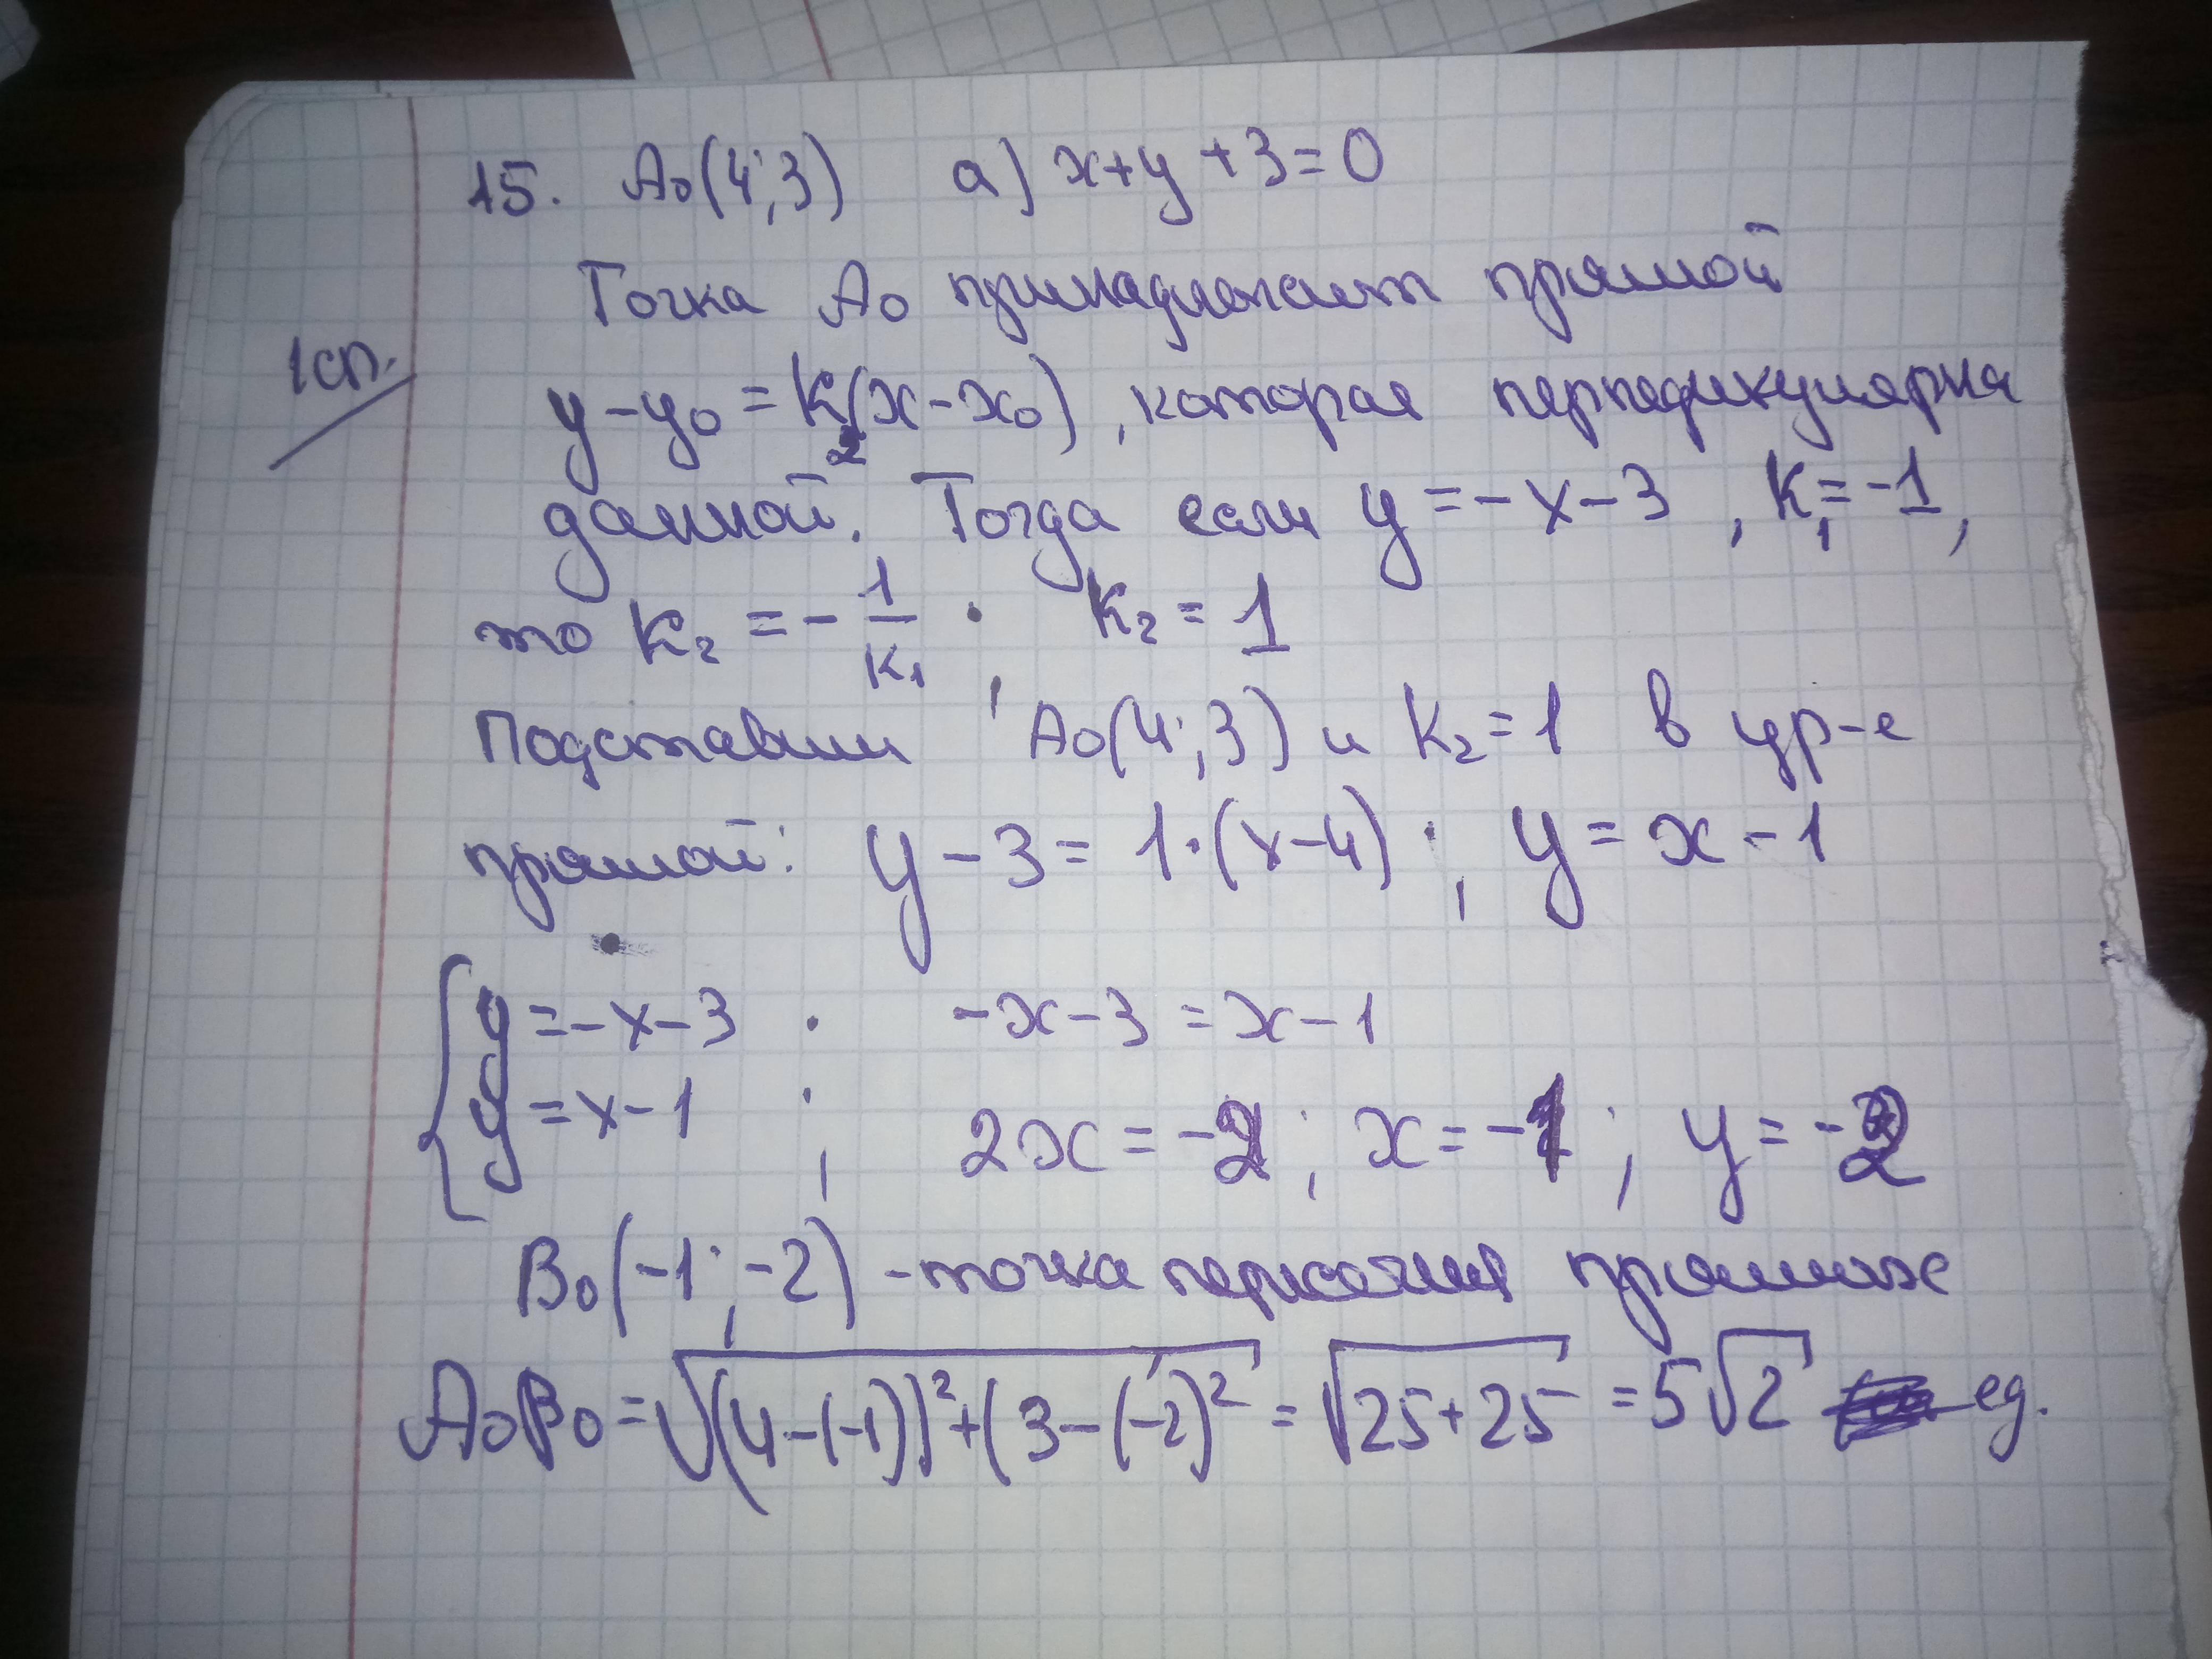 15. A₀(4;3) а) x+y+3=0
Точка A₀ принадлежит прямой
1сп.
y-y₀=k₂(x-x₀), которая перпедикулярна
данной. Тогда если y=-x-3, k₁=-1,
то k₂=-1/k₁; k₂=1
Подставим A₀(4;3) и k₂=1 в ур-е
прямой: y-3=1·(x-4); y=x-1
{y=-x-3
y=x-1; -x-3=x-1
2x=-2; x=-1; y=-2
B₀(-1;-2) -точка прямых
A₀B₀=√((4-(-1))²+(3-(-2)²=√25+25=5√2 ед.